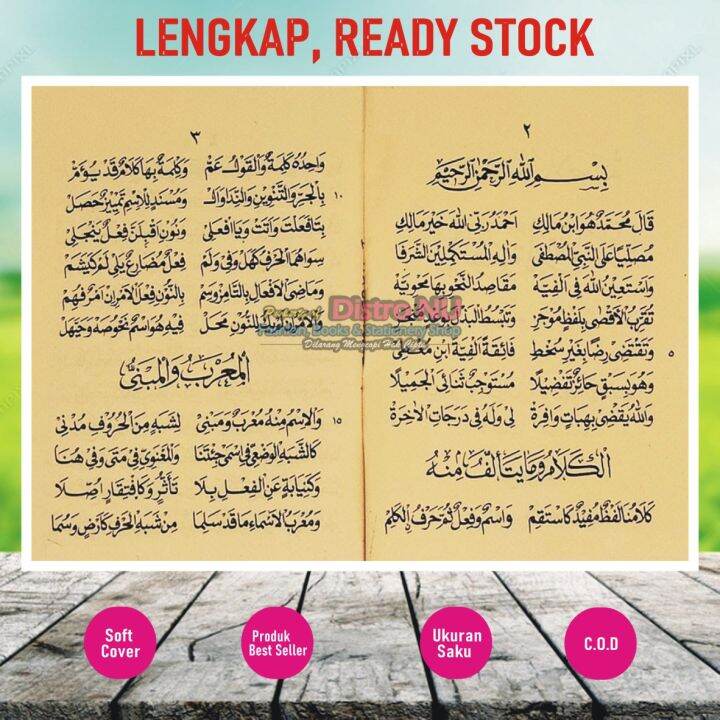 LENGKAP, READY STOCK
٢
بِسْمِ اللهِ الرَّحْمٰنِ الرَّحِيْمِ
قَالَ مُحَمَّدٌ هُوَ ابْنُ مَالِكِ اَحْمَدُ رَبِّى اللهَ خَيْرَ مَالِكِ
مُصَلِّيًا عَلَى النَّبِيِّ الْمُصْطَفٰى وَاٰلِهِ الْمُسْتَكْمِلِيْنَ الشَّرَفَا
وَاَسْتَعِيْنُ اللهَ فِى اَلْفِيَّهْ مَقَاصِدُ النَّحْوِ بِهَا مَحْوِيَّهْ
تُقَرِّبُ الْاَقْصٰى بِلَفْظٍ مُوْجَزِ وَتَبْسُطُ الْبَذْلَ
وَتَقْتَضِى رِضًا بِغَيْرِ سُخْطِ فَائِقَةً اَلْفِيَّةَ ابْنِ مُعْطِى ٥
وَهُوَ بِسَبْقٍ حَائِزٌ تَفْضِيْلًا مُسْتَوْجِبٌ ثَنَائِىَ الْجَمِيْلَا
وَاللهُ يَقْضِى بِهِبَاتٍ وَافِرَهْ لِى وَلَهُ فِى دَرَجَاتِ الْاٰخِرَهْ
اَلْكَلَامُ وَمَا يَتَاَلَّفُ مِنْهُ
كَلَامُنَا لَفْظٌ مُفِيْدٌ كَاسْتَقِمْ وَاسْمٌ وَفِعْلٌ ثُمَّ حَرْفٌ اِلْكَلِمْ
٣
وَاحِدُهُ كَلِمَةٌ وَالْقَوْلُ عَمّْ وَكِلْمَةٌ بِهَا كَلَامٌ قَدْ يُؤَمّْ
بِالْجَرِّ وَالتَّنْوِيْنِ وَالنِّدَا وَاَلْ وَمُسْنَدٍ لِلْاِسْمِ تَمْيِيْزٌ حَصَلْ ١٠
بِتَا فَعَلْتَ وَاَتَتْ وَيَا افْعَلِى وَنُوْنِ اَقْبِلَنَّ فِعْلٌ يَنْجَلِى
سِوَاهُمَا الْحَرْفُ كَهَلْ وَفِى وَلَمْ فِعْلٌ مُضَارِعٌ يَلِى لَمْ كَيَشَمْ
وَمَاضِىَ الْاَفْعَالِ بِالتَّا مِزْ وَسِمْ بِالنُّوْنِ فِعْلَ الْاَمْرِ اِنْ اَمْرٌ فُهِمْ
وَالْاَمْرُ اِنْ لَمْ يَكُ لِلنُّوْنِ مَحَلّْ فِيْهِ هُوَ اسْمٌ نَحْوُ صَهْ وَحَيَّهَلْ
Distro NU
Fashion, Books & Stationery Shop
Dilarang Mengcopi Hak Cipta
اَلْمُعْرَبُ وَالْمَبْنِىُّ
وَالْاِسْمُ مِنْهُ مُعْرَبٌ وَمَبْنِى لِشَبَهٍ مِنَ الْحُرُوْفِ مُدْنِى ١٥
كَالشَّبَهِ الْوَضْعِىِّ فِى اسْمَىْ جِئْتَنَا وَالْمَعْنَوِىِّ فِى مَتٰى وَفِى هُنَا
وَكَنِيَابَةٍ عَنِ الْفِعْلِ بِلَا تَأَثُّرٍ وَكَافْتِقَارٍ اُصِّلَا
وَمُعْرَبُ الْاَسْمَاءِ مَا قَدْ سَلِمَا مِنْ شَبَهِ الْحَرْفِ كَاَرْضٍ وَسُمَا
Soft
Cover
Produk
Best Seller
Ukuran
Saku
C.O.D